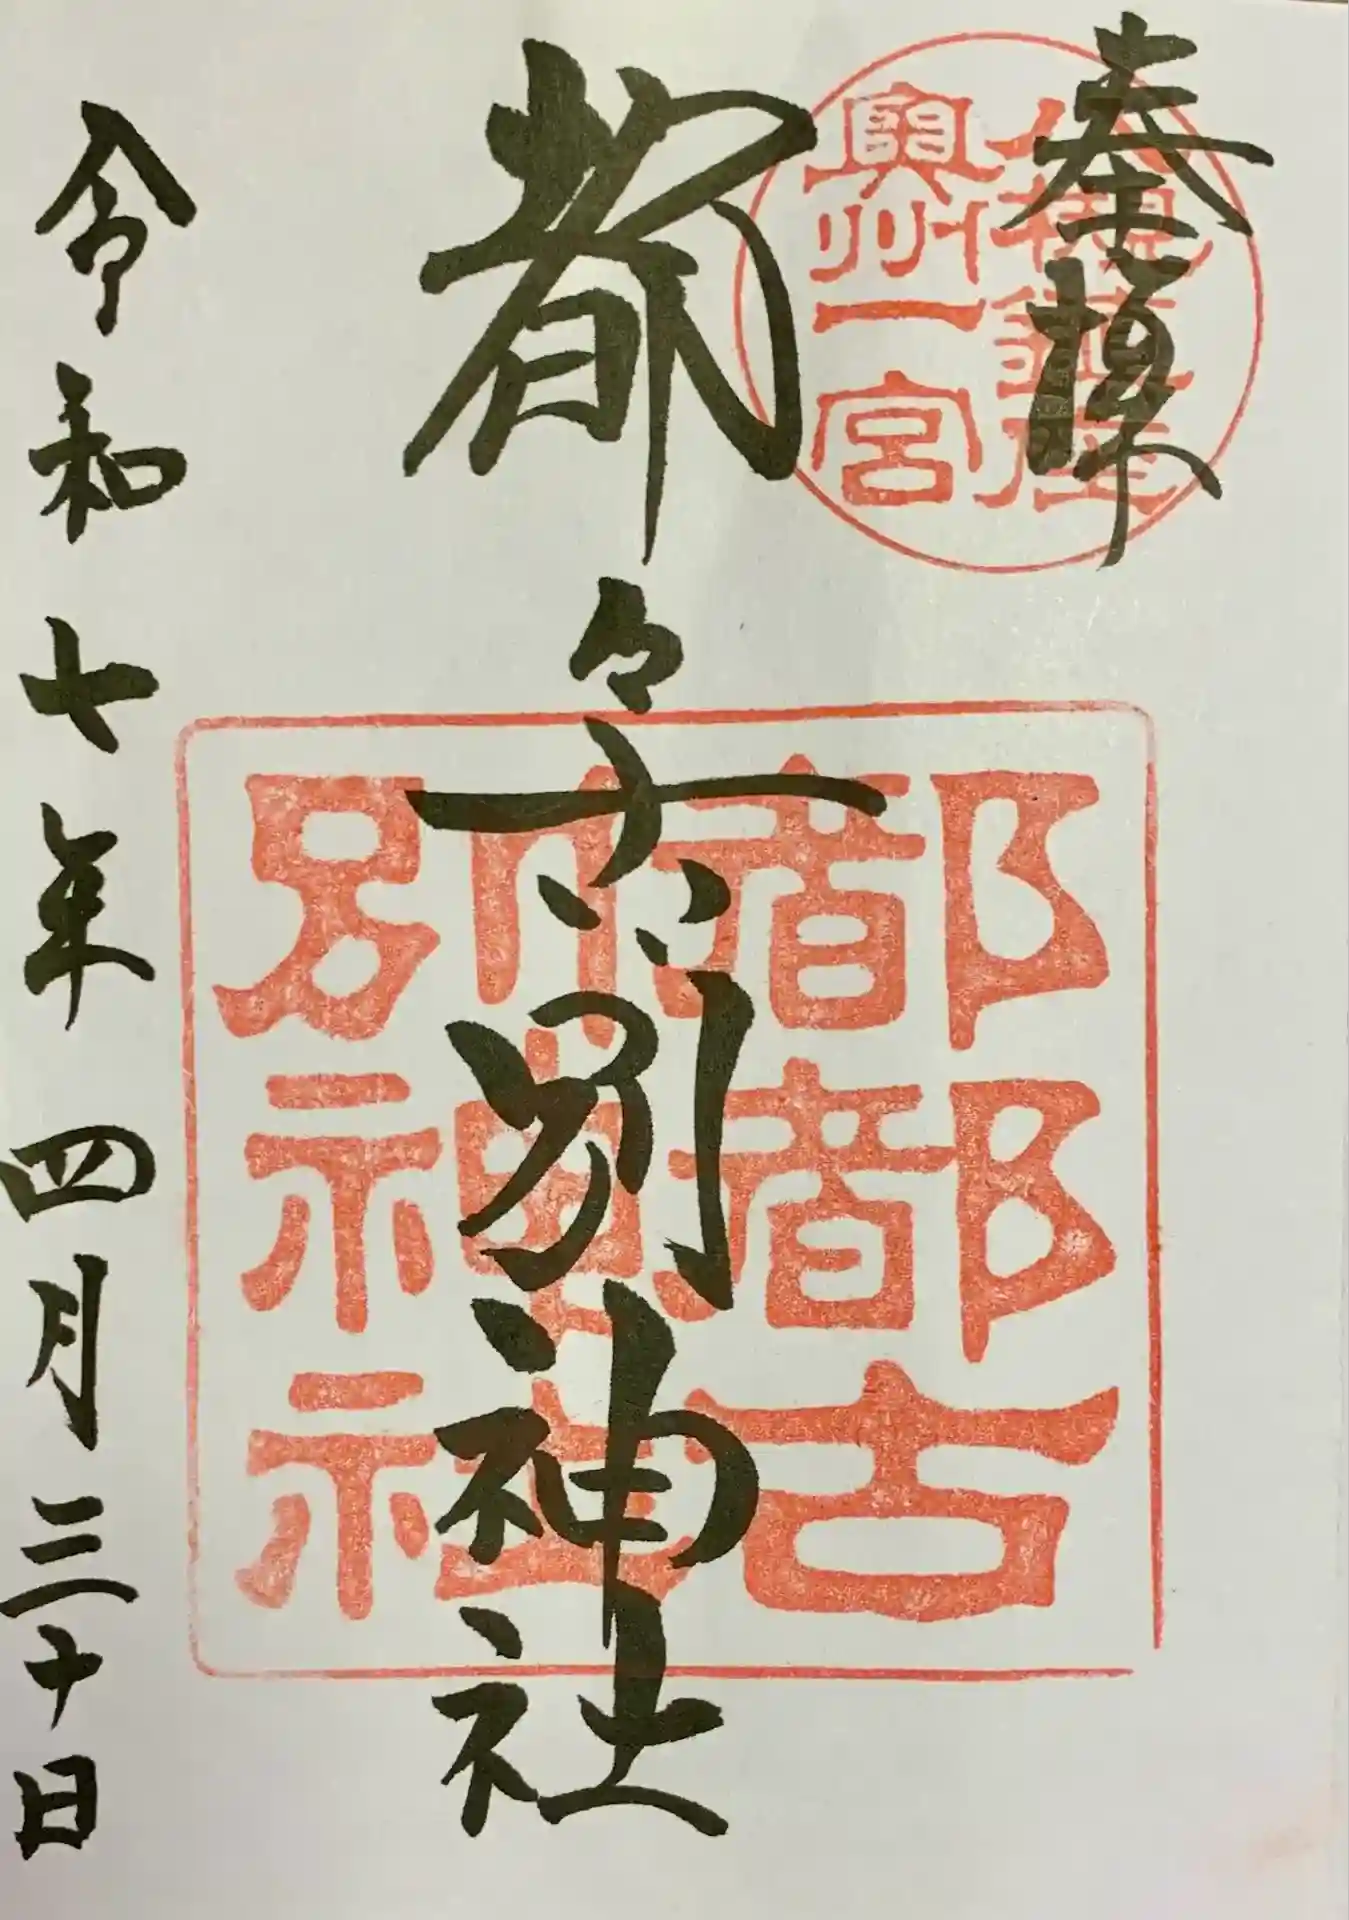 奉拝
八槻鎮座
奥州一宮
都々古別神社
都都古
別神社
令和七年四月三十日